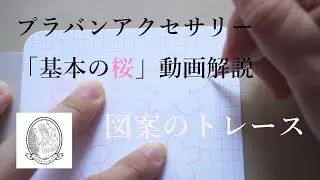 プラバンアクセサリー
「基本の桜」動画解説
図案のトレース